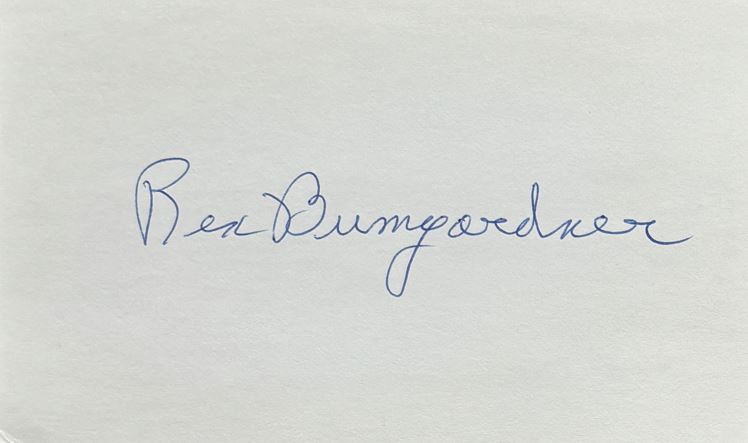 Rex Bumgardner